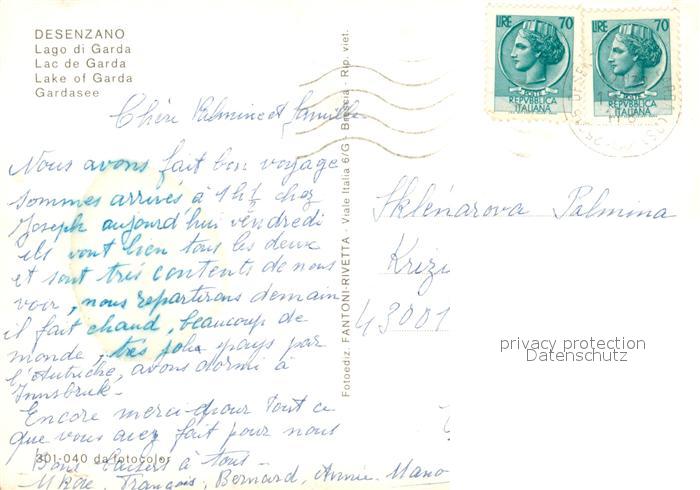 DESENZANO
Lago di Garda
Lac de Garda
Lake of Garda
Gardasee
LIRE 70
POSTE
REPVBBLICA
ITALIANA
LIRE 70
POSTE
REPVBBLICA
ITALIANA
Chère Palmine et famille
Nous avons fait bon voyage
sommes arrivés à 1h½ chez
Joseph aujourd'hui vendredi
ils vont bien tous les deux
et sont très contents de nous
voir, nous repartirons demain
il fait chaud, beaucoup de
monde, très joli pays par
l'Autriche, avons dormi à
Innsbruk-
Encore merci pour tout ce
que vous avez fait pour nous
Bons baisers à tous-
François, Bernard, Annie
301-040 da fotocolor
Fotoediz. FANTONI-RIVETTA - Viale Italia 6/G - Brescia - Rip. viet.
Sklénarova Palmina
Krizi
43001
privacy protection
Datenschutz